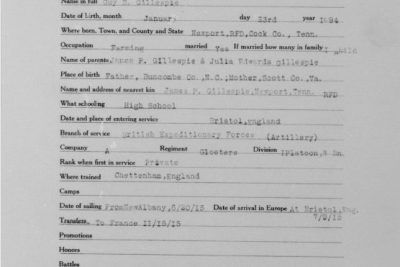 Name in Full Guy M. Gillespie
Date of birth, month Januar: day 23rd year 1894
Where born, Town, and County and State Newport,RFD,Cock Co., Tenn.
Occupation Farming married Yes If married how many in family
Name of parents James P. Gillespie & Julia Edwards Gillespie
Place of birth Father, Buncombe Co, N.C.,Mother,Scott Co.,Va.
Name and address of nearest kin James P. Gillespie,Newport,Tenn. RFD
What schooling High School
Date and place of entering service Bristol,England
Branch of service British Expeditionary Forces (Artillery)
Company A Regiment Glosters Division Platoon, Bn.
Rank when first in service Private
Where trained Cheltenham,England
Camps
Date of sailing From NewAlbany, 6/20/15 Date of arrival in Europe At Bristol,Eng. 7/9/15
Transfers. To France 11/18/15
Promotions
Honors
Battles